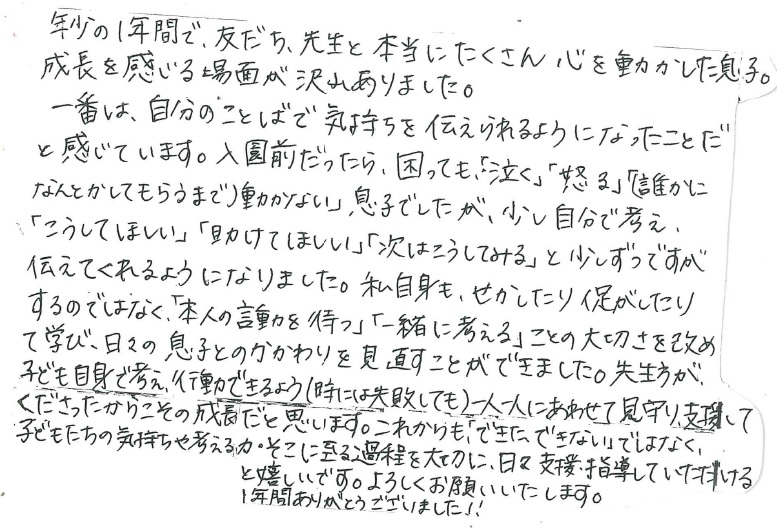 年少の1年間で、友だち、先生と本当にたくさん心を動かした息子。
成長を感じる場面が沢山ありました。
一番は、自分のことばで気持ちを伝えられるようになったことだ
と感じています。入園前だったら、困っても、「泣く」「怒る」「(誰かに
なんとかしてもらうまで)動かない」息子でしたが、少し自分で考え、
「こうしてほしい」「助けてほしい」「次はこうしてみる」と少しずつですが
伝えてくれるようになりました。私自身も、せかしたり促がしたり
するのではなく、「本人の言動を待つ」「一緒に考える」ことの大切さを改め
て学び、日々の息子とのかかわりを見直すことができました。先生方が、
子ども自身で考え、行動できるよう(時には失敗しても)一人一人にあわせて見守り、支援して
くださったからこその成長だと思います。これからも、「できた、できない」ではなく、
子どもたちの気持ちや考える力・そこに至る過程を大切に、日々支援・指導していただける
と嬉しいです。よろしくお願いいたします。
1年間ありがとうございました!!